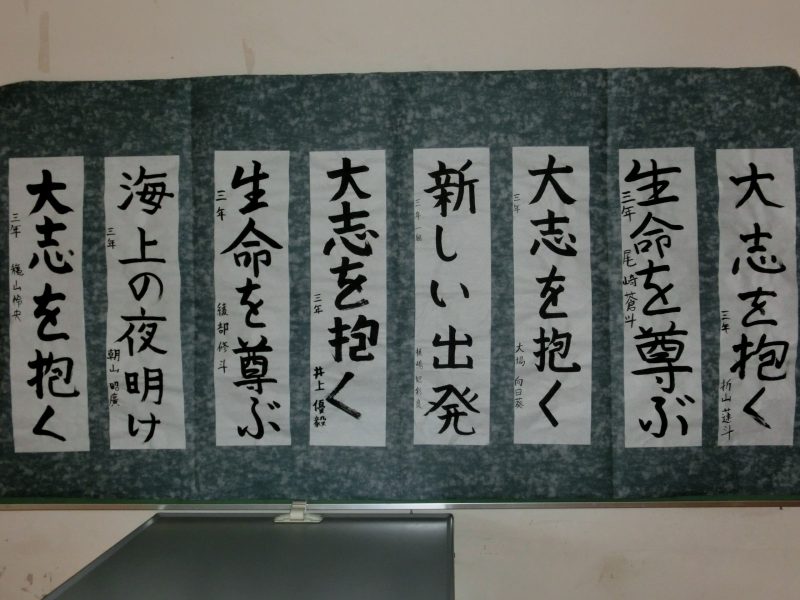 大志を抱く
三年 折山蓮斗
生命を尊ぶ
三年 尾崎蒼斗
大志を抱く
三年 大場 向日葵
新しい出発
三年一組
大志を抱く
三年 井上優毅
生命を尊ぶ
三年 後部修斗
海上の夜明け
三年 朝山明廣
大志を抱く
三年